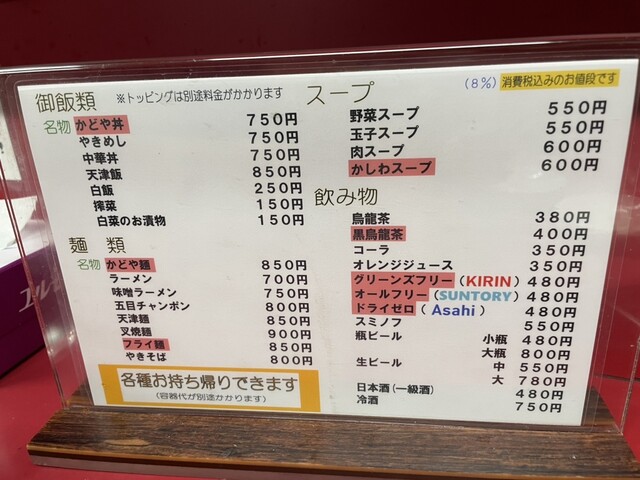 御飯類 ※トッピングは別途料金がかかります
名物 かどや丼 750円
やきめし 750円
中華丼 750円
天津飯 850円
白飯 250円
搾菜 150円
白菜のお漬物 150円
麺 類
名物 かどや麺 850円
ラーメン 700円
味噌ラーメン 750円
五目チャンポン 800円
天津麺 850円
叉焼麺 900円
フライ麺 850円
やきそば 800円
各種お持ち帰りできます
(容器代が別途かかります)
スープ (8%) 消費税込みのお値段です
野菜スープ 550円
玉子スープ 550円
肉スープ 600円
かしわスープ 600円
飲み物
烏龍茶 380円
黒烏龍茶 400円
コーラ 350円
オレンジジュース 350円
グリーンズフリー (KIRIN) 480円
オールフリー (SUNTORY) 480円
ドライゼロ ( Asahi ) 480円
スミノフ 550円
瓶ビール 小瓶 480円
大瓶 800円
生ビール 中 550円
大 780円
日本酒(一級酒) 480円
冷酒 750円